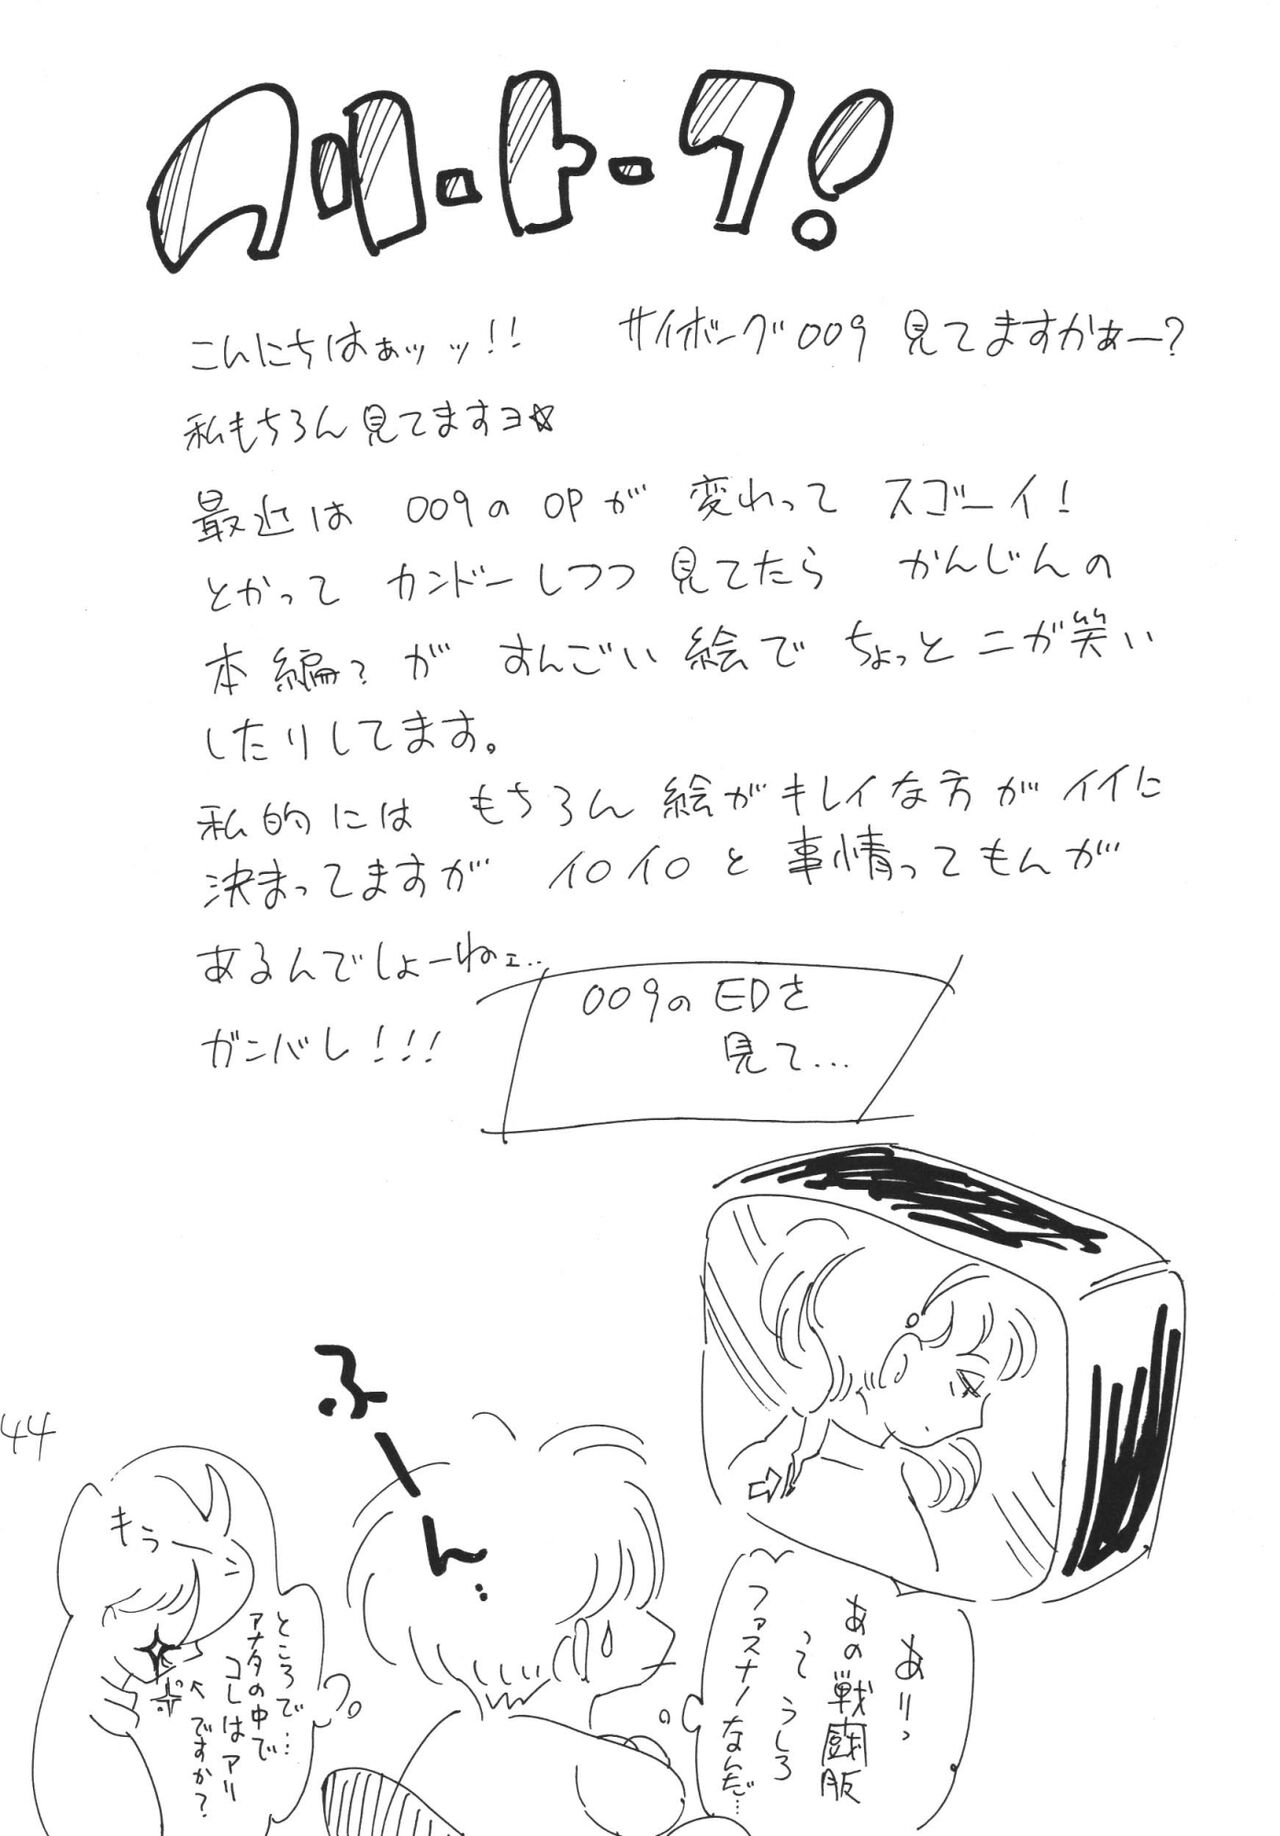 フリートーク!
こんにちはぁッッ!! サイボーグ009見てますかぁー?
私もちろん見てますヨ☆
最近は 009の OPが 変わって スゴーイ!
とかって カンドーしつつ 見てたら かんじんの
本編?が すんごい絵で ちょっとニガ笑い
したりしてます。
私的には もちろん絵がキレイな方がイイに
決まってますが イロイロと事情ってもんが
あるんでしょーねェ…
ガンバレ!!!
009のEDを
見て…
ふーん…
ありっ
あの戦闘服
って うしろ
ファスナーなんだ…
もうーっ
ところで…
アナタの中で
コレはアリ
ですか?
44